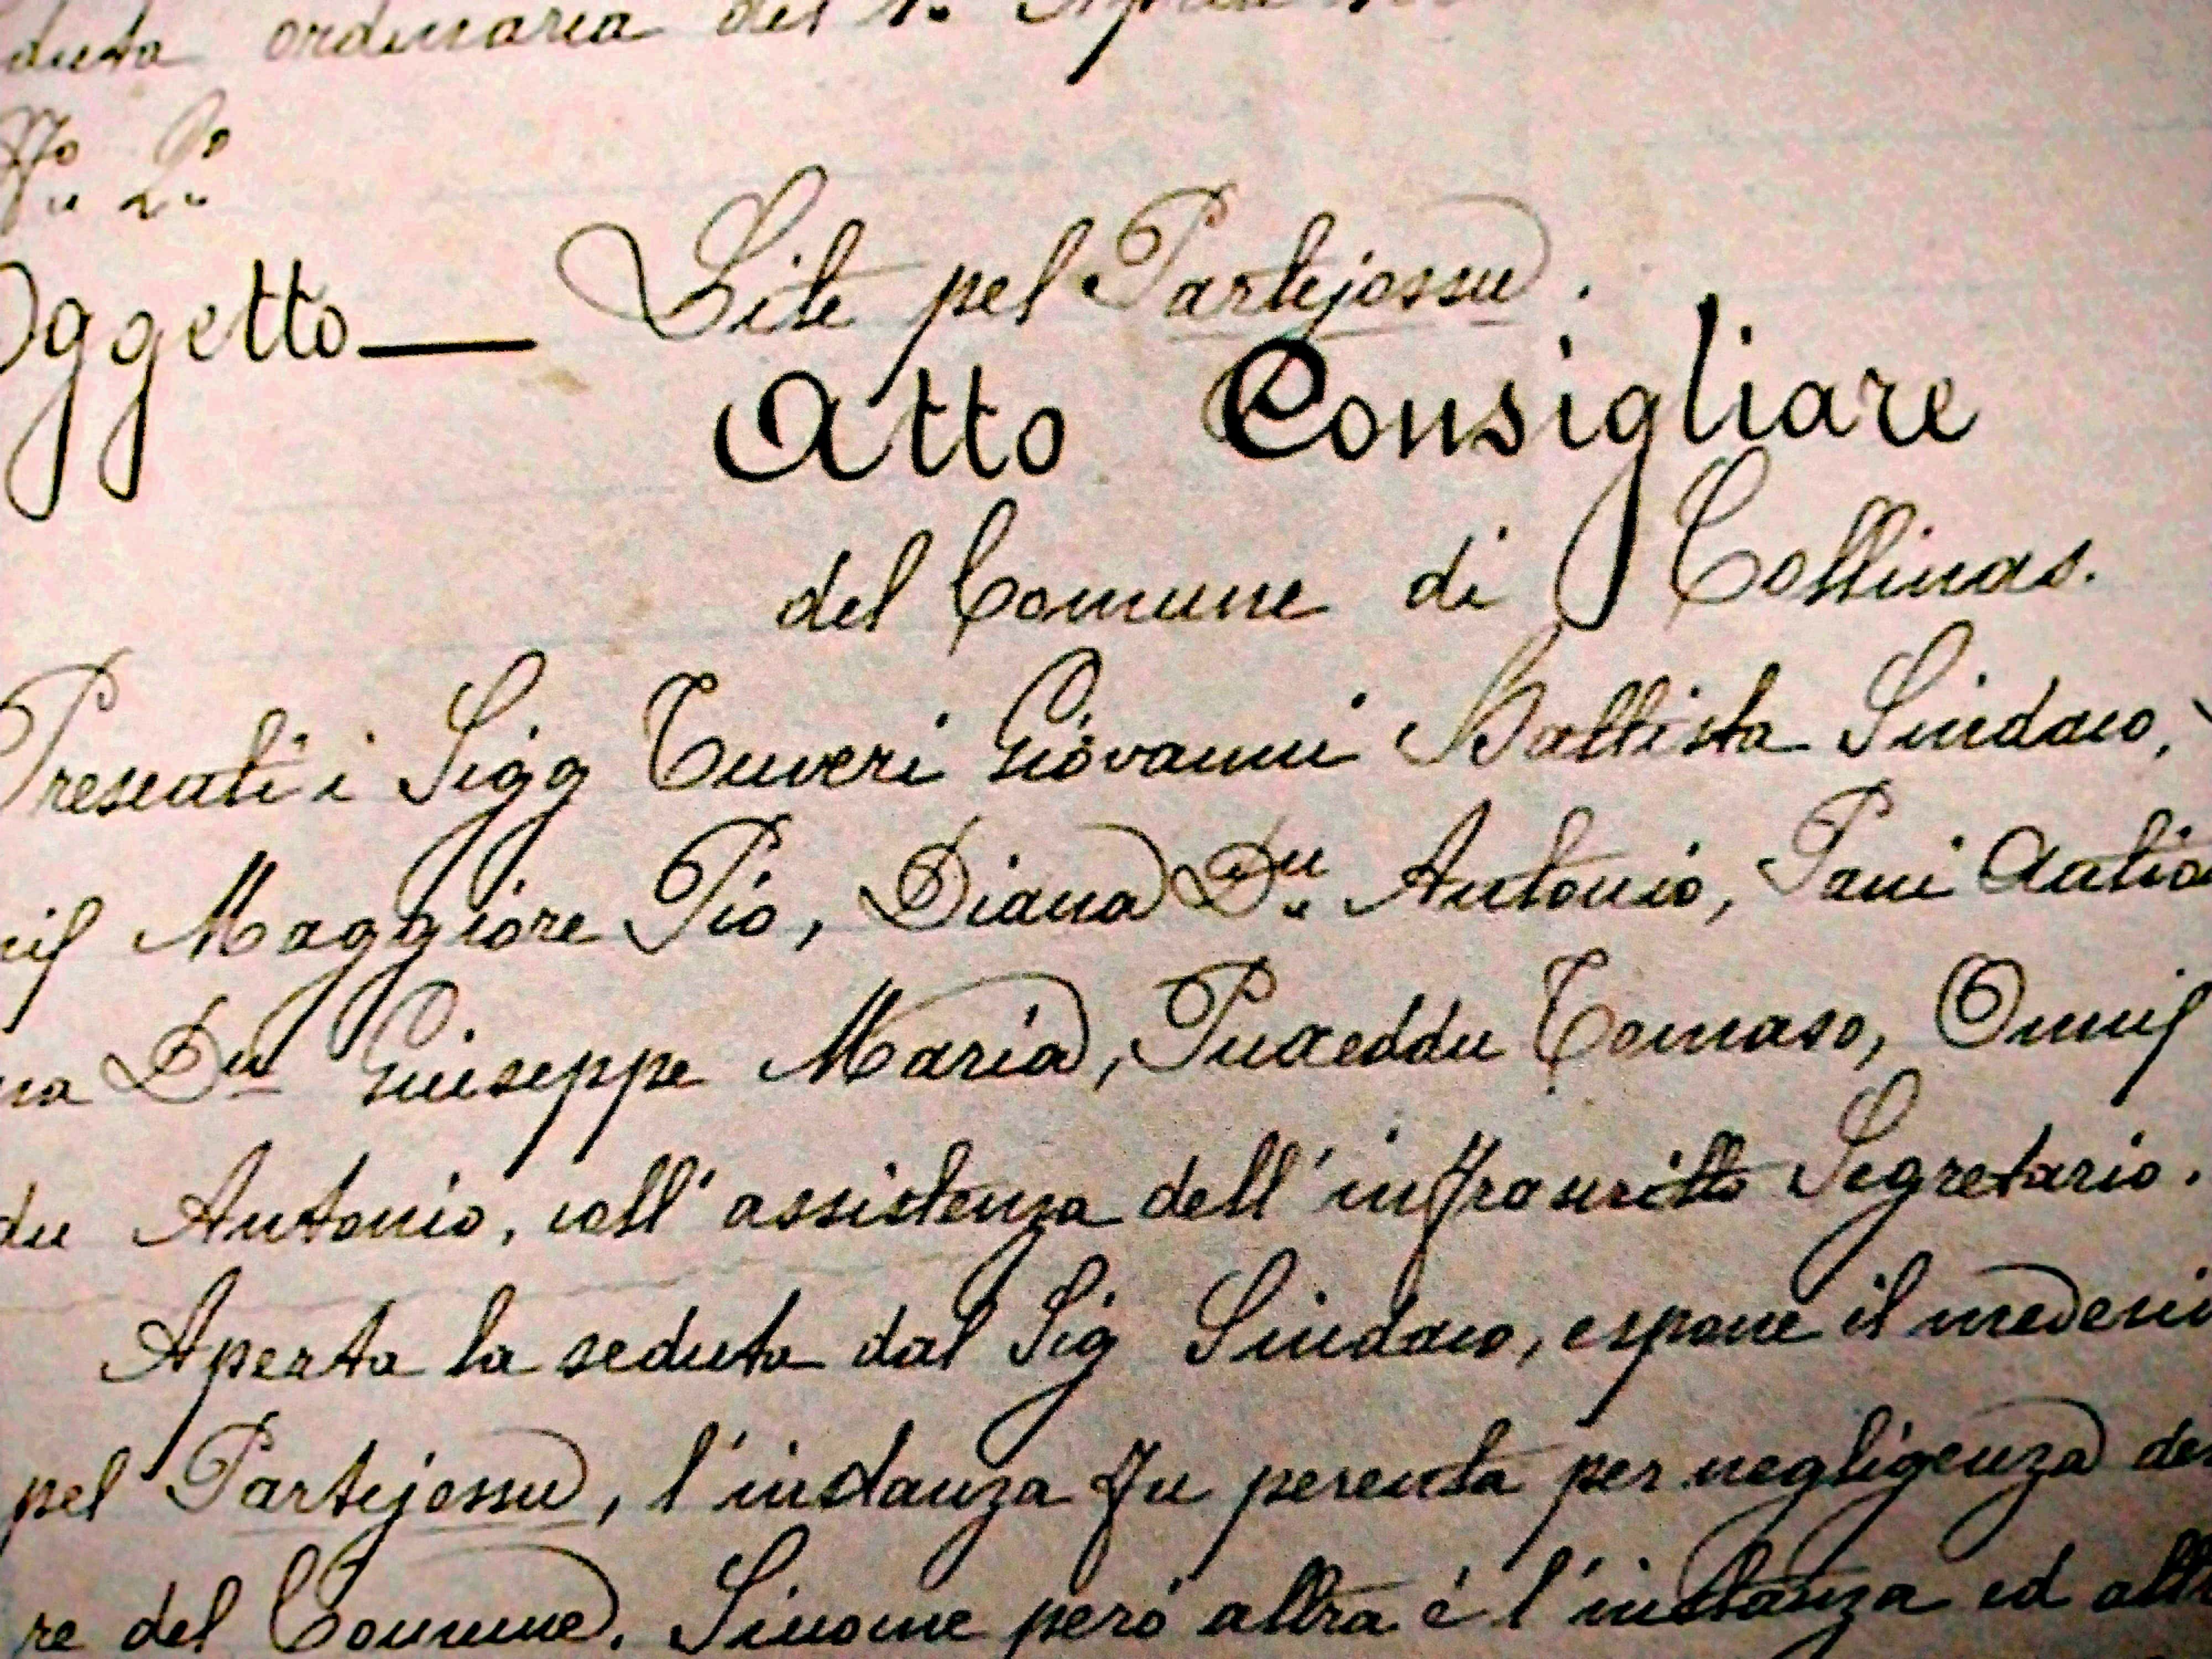 duta ordinaria del 1.
N.° 2.°
Oggetto — Lite pel Partejossu.
Atto Consigliare
del Comune di Collinas.
Presenti i Sigg Tuveri Giovanni Battista Sindaco,
Maggiore Pio, Diana D.n Antonio, Pani
na D.n Giuseppe Maria, Puxeddu Tomaso, Onnis
du Antonio, coll' assistenza dell' infrascritto Segretario.
Aperta la seduta dal Sig Sindaco, espone il medesi
pel Partejossu, l'instanza fu perenta per negligenza de
re del Comune. Siccome però altra è l'instanza ed alt